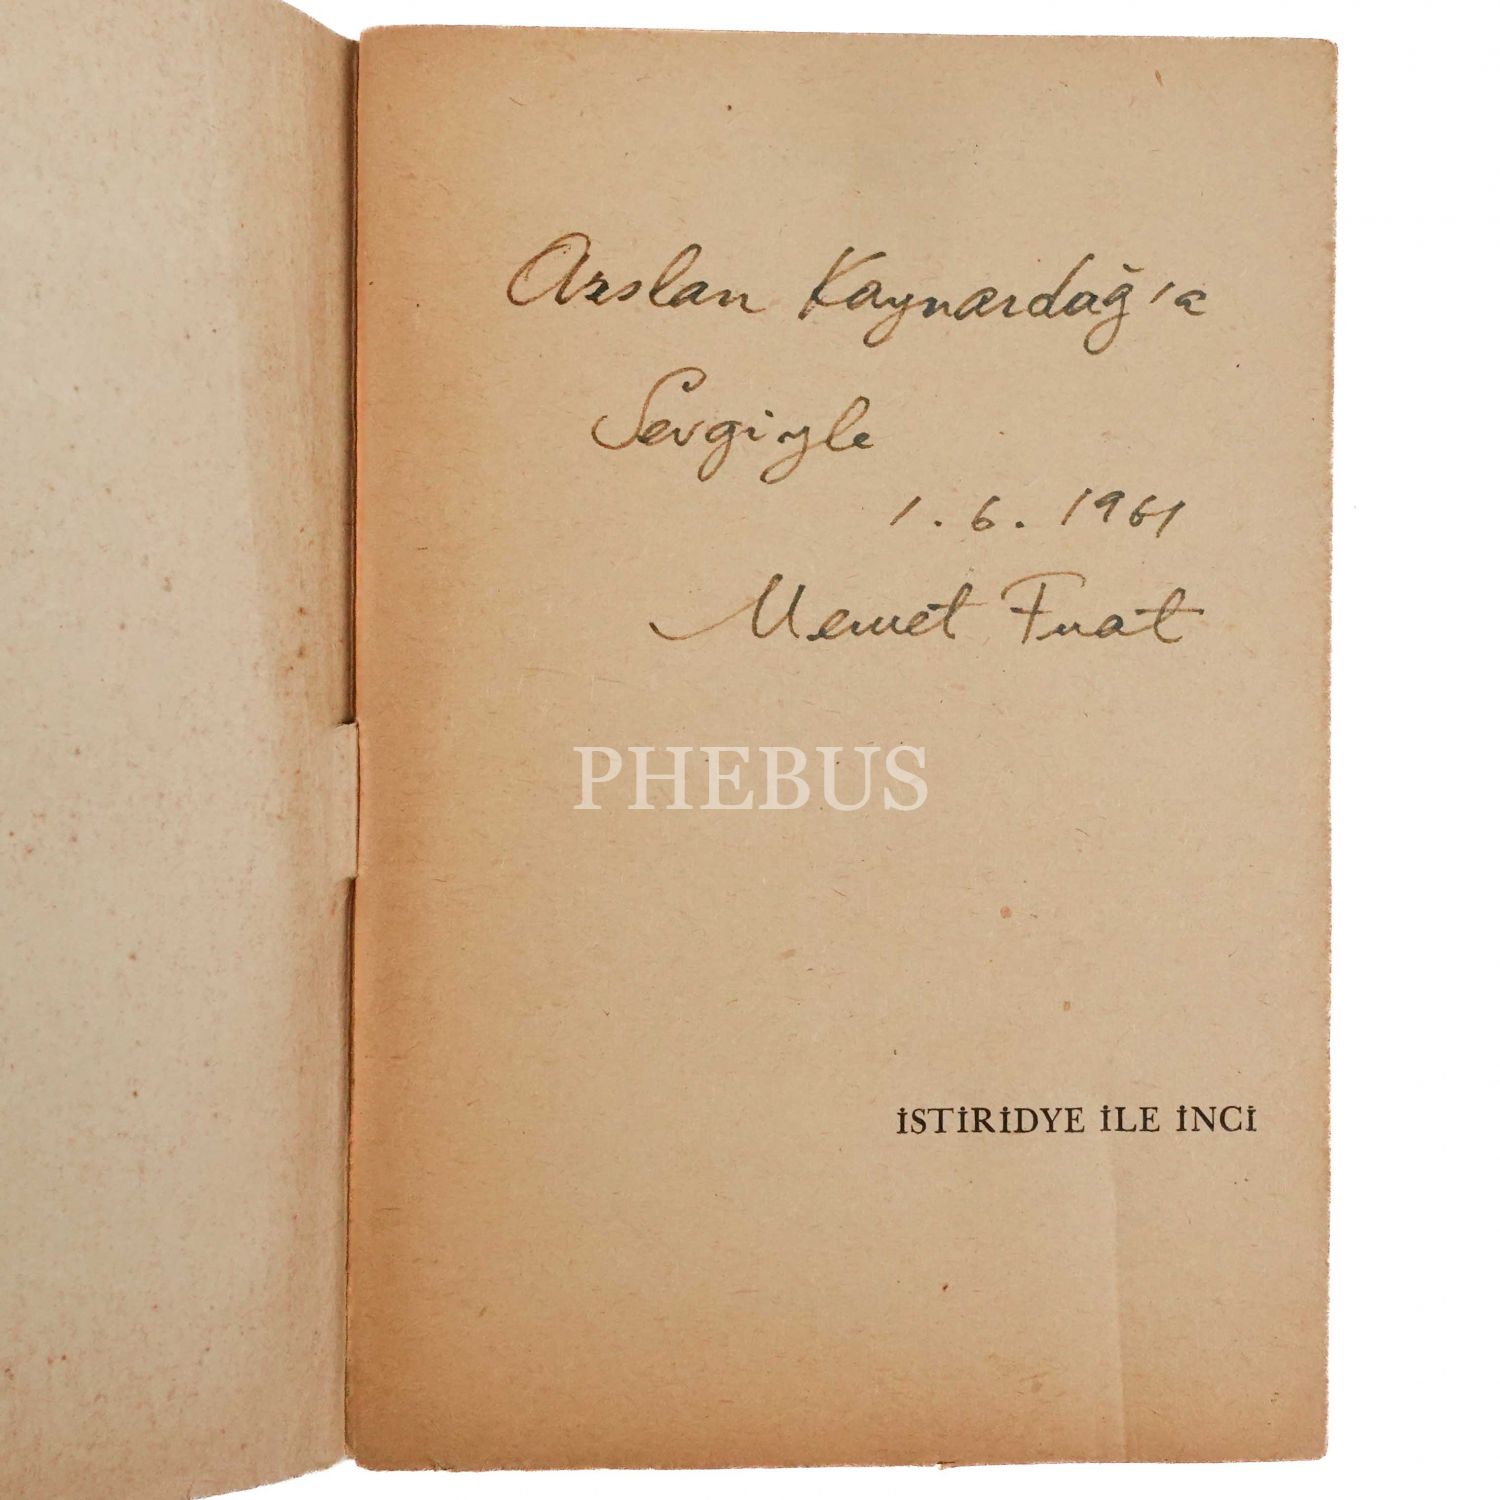 Arslan Kaynardağ'a
Sevgiyle
1.6.1961
Memet Fuat
PHEBUS
İSTİRİDYE İLE İNCİ